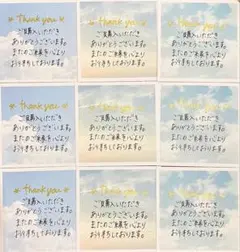 Thank you
ご購入いただき
ありがとうございます。
またのご縁を心より
お待ちしております。
Thank you
ご購入いただき
ありがとうございます。
またのご縁を心より
お待ちしております。
Thank you
ご購入いただき
ありがとうございます。
またのご縁を心より
お待ちしております。
Thank you
ご購入いただき
ありがとうございます。
またのご縁を心より
お待ちしております。
Thank you
ご購入いただき
ありがとうございます。
またのご縁を心より
お待ちしております。
Thank you
ご購入いただき
ありがとうございます。
またのご縁を心より
お待ちしております。
Thank you
ご購入いただき
ありがとうございます。
またのご縁を心より
お待ちしております。
Thank you
ご購入いただき
ありがとうございます。
またのご縁を心より
お待ちしております。
Thank you
ご購入いただき
ありがとうございます。
またのご縁を心より
お待ちしております。